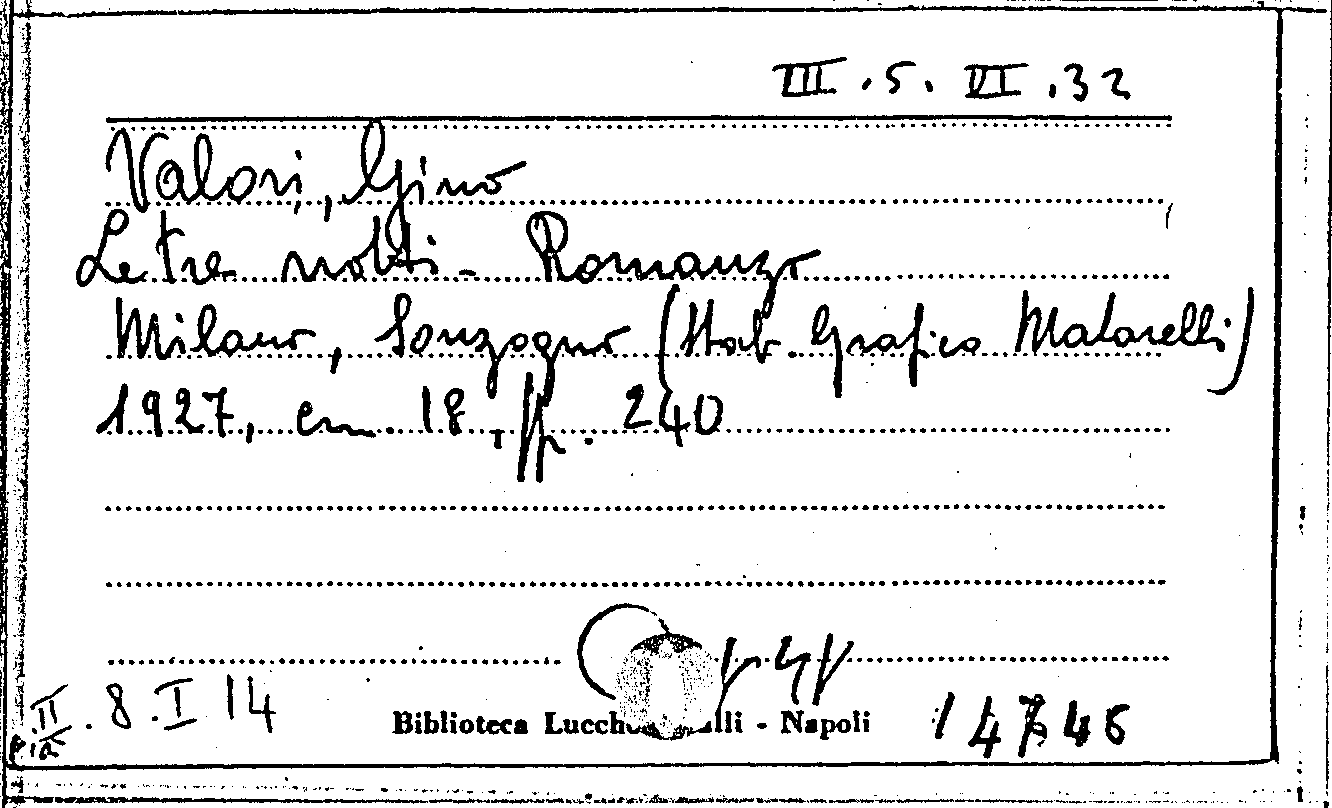 III.5.VI.32
Valori, Gino
Le tre notti - Romanzo
Milano, Sonzogno (Stab. Grafico Matarelli)
1927, cm. 18, pp. 240
II.8.I 14
Biblioteca Lucch lli - Napoli